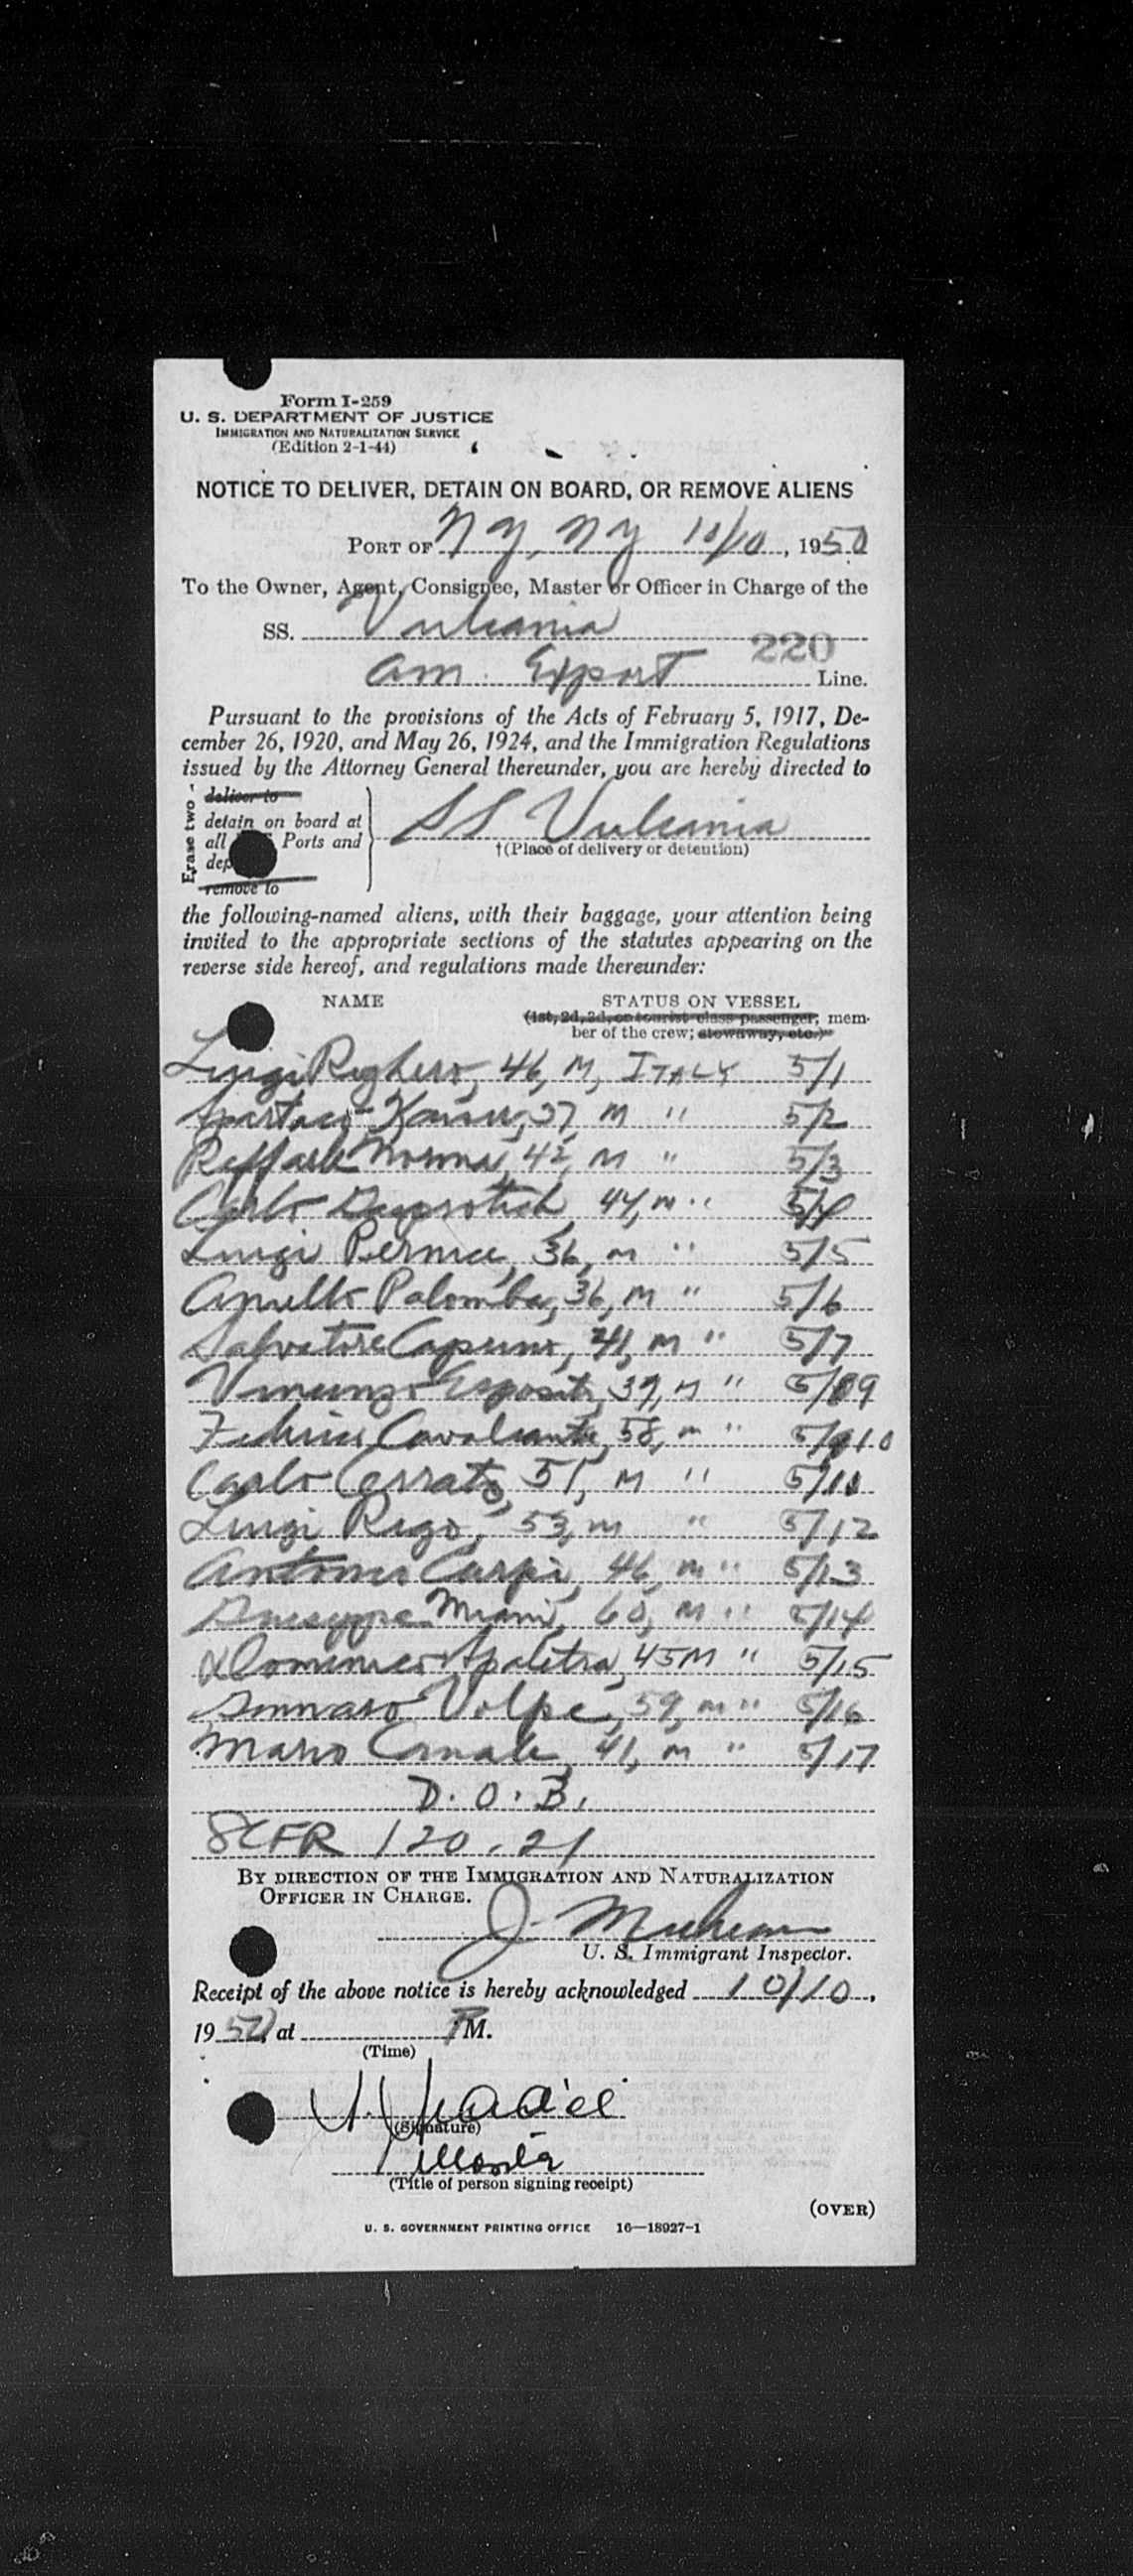 Form I-259
U. S. DEPARTMENT OF JUSTICE
IMMIGRATION AND NATURALIZATION SERVICE
(Edition 2-1-44)
NOTICE TO DELIVER, DETAIN ON BOARD, OR REMOVE ALIENS
PORT OF N Y, N Y 10/10, 1950
To the Owner, Agent, Consignee, Master or Officer in Charge of the
SS. Vulcania
220
Am. Export Line.
Pursuant to the provisions of the Acts of February 5, 1917, De-
cember 26, 1920, and May 26, 1924, and the Immigration Regulations
issued by the Attorney General thereunder, you are hereby directed to
Erase two
deliver to
detain on board at
all Ports and
dep
remove to
SS Vulcania
†(Place of delivery or detention)
the following-named aliens, with their baggage, your attention being
invited to the appropriate sections of the statutes appearing on the
reverse side hereof, and regulations made thereunder:
NAME STATUS ON VESSEL
(1st, 2d, 3d, or tourist class passenger; mem-
ber of the crew; stowaway, etc.)
Luigi Righero, 46, M, ITALY 5/1
Spartaco 37, M " 5/2
Raffaele Norma, 42, M " 5/3
Carlo 44, M " 5/4
Luigi Pernice, 36, M " 5/5
Aniello Palomba, 36, M " 5/6
Salvatore Capuano, 41, M " 5/7
Vincenzo Esposito, 39, M " 5/9
Federico Cavaliante, 58, M " 5/10
Carlo Cerrato, 51, M " 5/11
Luigi Rigo, 53, M " 5/12
Antonio Carpi, 46, M " 5/13
Giuseppe Miani, 60, M " 5/14
Domenico Spaletra, 45 M " 5/15
Gennaro Volpe, 59, M " 5/16
Mario 41, M " 5/17
D. O. B.
8CFR 120.21
BY DIRECTION OF THE IMMIGRATION AND NATURALIZATION
OFFICER IN CHARGE.
J.
U. S. Immigrant Inspector.
Receipt of the above notice is hereby acknowledged 10/10,
1950, at PM.
(Time)
(Signature)
(Title of person signing receipt)
(OVER)
U. S. GOVERNMENT PRINTING OFFICE 16—18927-1